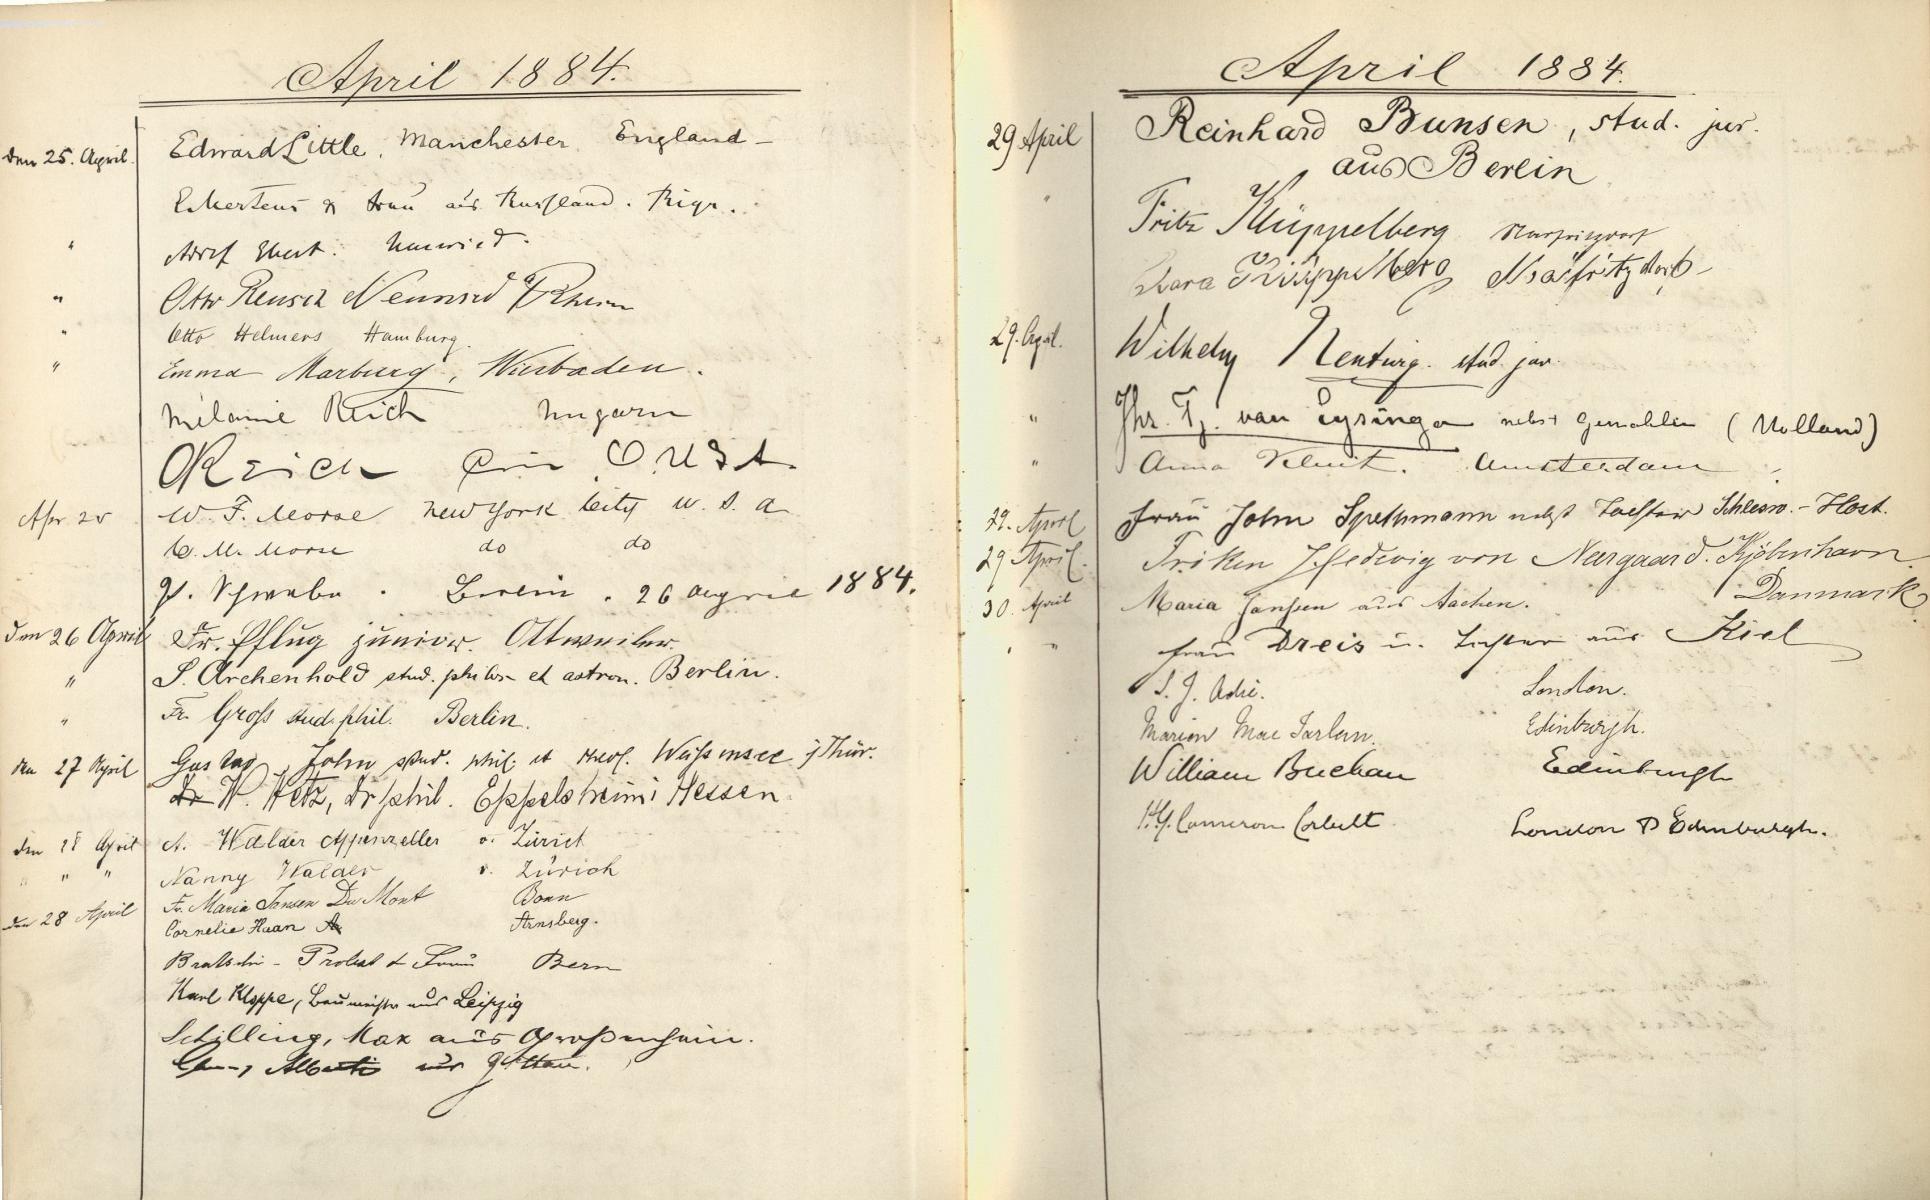 April 1884.
den 25. April. Edward Little, Manchester England
E. Mertens & Frau aus Russland. Riga.
" Adolf Ebert. Neuwied.
" Otto Reusch Neuwied a/Rhein
" Otto Helmers Hamburg.
" Emma Marburg, Wiesbaden.
Mélanie Reich Ungarn
Reich O. U.S.A.
Apr 25 W. F. Morse New York City U. S. A
C. M. Morse do do
P. Schwabe. Berlin. 26 April 1884.
den 26 April Fr. Pflug junior. Ottweiler.
" S. Archenhold stud. philos et astron. Berlin.
" Fr. Gross stud. phil. Berlin.
den 27 April Gustav John stud. phil. et theol. Weissensee i/Thür.
Dr W. Hetz, Dr phil. Eppelsheim i Hessen
den 28 April A. Walder Appenzeller v. Zürich
" " " Nanny Walder v. Zürich
Fr. Maria Jansen Du Mont Bonn
den 28 April Cornelie Haan Arnsberg.
Bratschi - Probst & Frau Bern
Karl Kloppe, Baumeister aus Leipzig
Schilling, Max aus Großenhain.
Alberti aus Zittau.
April 1884.
29 April Reinhard Bunsen, stud. jur.
aus Berlin
" Fritz Klüppelberg
Clara Klüppelberg
29. April. Wilhelm Nentwig. stud. jur.
" Jhr. Tj. van Eysinga nebst Gemahlin (Holland)
" Anna Amsterdam
29. April Frau John Spethmann nebst Tochter Schlesw.-Holst.
29 April. Fröken Hedwig von Neergaard. Kjöbenhavn
Danmark
30. April Maria Jansen aus Aachen.
" " Frau Dreis u. Tochter aus Kiel
S. J. Adie. London.
Marion Mac Farlan. Edinburgh.
William Buchan Edinburgh
H. J. Cameron Corbett London & Edinburgh.